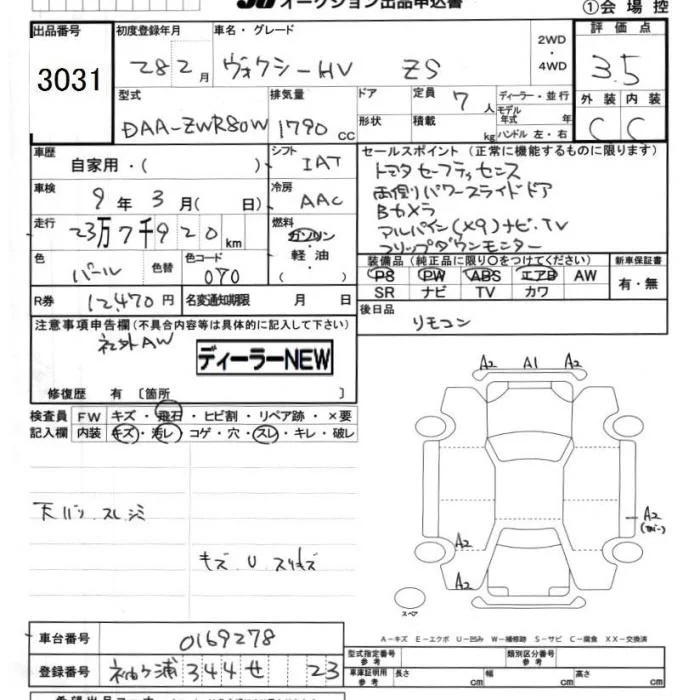 オークション出品申込書
①会場控
出品番号
3031
初度登録年月
28 2月
車名・グレード
ヴォクシーHV ZS
2WD・4WD
評価点
3.5
外装 内装
C C
型式
DAA-ZWR80W
排気量
1790cc
ドア
形状
定員 7人
積載 kg
ディーラー・並行
モデル年式 年
ハンドル 左・右
車歴
自家用・( )
シフト
IAT
車検
9年3月( 日)
冷房
AAC
走行
23万7千920km
燃料
ガソリン
軽油
( )
色
パール
色替
色コード
070
R券
12,470円
名変通知期限 月 日
セールスポイント(正常に機能するものに限ります)
トヨタセーフティセンス
両側パワースライドドア
Bカメラ
アルパイン(X9)ナビ・TV
フリップダウンモニター
装備品(純正品に限り○をつけてください)
PS PW ABS エアB AW
SR ナビ TV カワ
新車保証書
有・無
後日品
リモコン
注意事項申告欄(不具合内容等は具体的に記入して下さい)
社外AW
ディーラーNEW
修復歴 有〔箇所 〕
検査員記入欄
FW キズ・飛石・ヒビ割・リペア跡・×要
内装 キズ・汚レ・コゲ・穴・スレ・キレ・破レ
天バリ スレ シミ
キズ U スリキズ
A2 A1 A2
A2
A2
A2
スペア
A-キズ E-エクボ U-凹み W-補修跡 S-サビ C-腐食 XX-交換済
車台番号
0169278
登録番号
袖ケ浦 344 せ 23
型式指定番号
参考
類別区分番号
参考
車庫証明用
参考
長さ cm 幅 cm 高さ cm